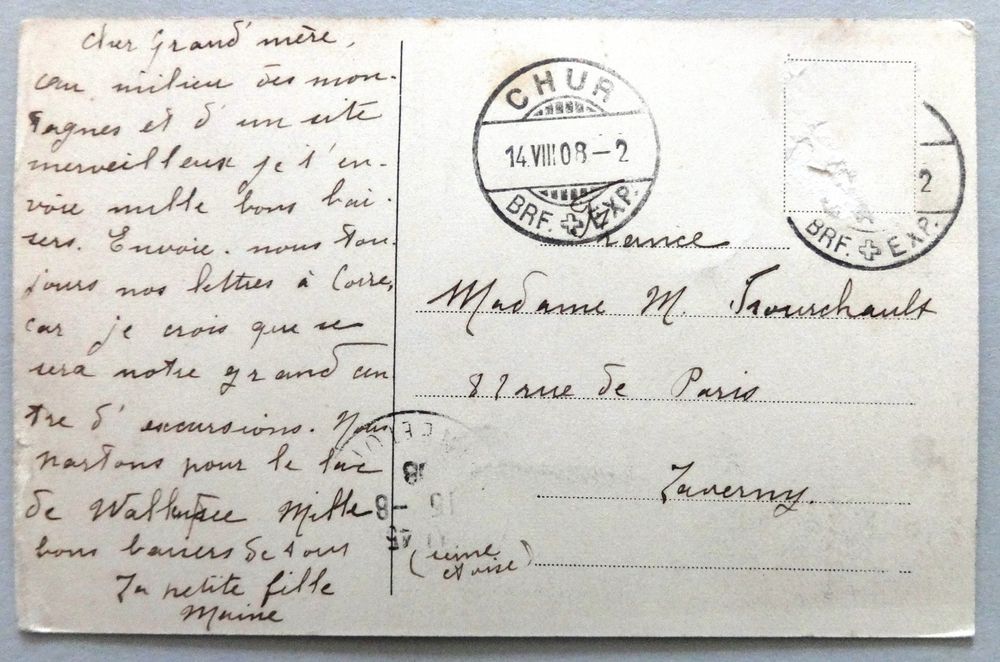 Cher Grand'mère,
au milieu des mon-
tagnes et d'un site
merveilleux je t'en-
voie mille bons bai-
sers. Envoie-nous tou-
jours nos lettres à Coire,
car je crois que ce
sera notre grand cen
tre d'excursions. Nous
partons pour le lac
de Mille
bons baisers de tous
Ta petite fille
CHUR
14.VIII.08-2
BRF. EXP.
2
BRF. EXP.
France
Madame M. Trourchault
rue de Paris
Taverny.
(seine
et oise)
18
15 -8